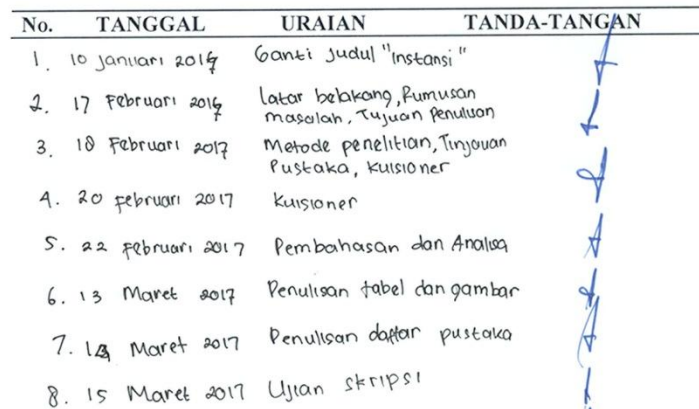 No. TANGGAL URAIAN TANDA-TANGAN
1. 10 Januari 2017 Ganti Judul "Instansi"
2. 17 Februari 2017 Latar belakang, Rumusan
masalah, Tujuan Penulisan
3. 18 Februari 2017 Metode penelitian, Tinjauan
Pustaka, Kuisioner
4. 20 Februari 2017 Kuisioner
5. 22 Februari 2017 Pembahasan dan Analisa
6. 13 Maret 2017 Penulisan tabel dan gambar
7. Maret 2017 Penulisan daftar pustaka
8. 15 Maret 2017 Ujian skripsi